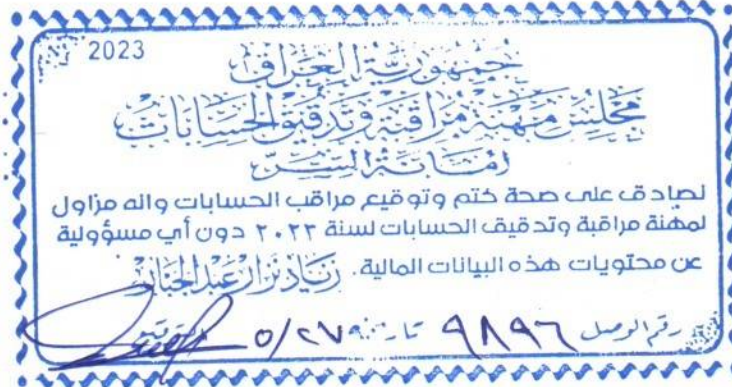 2023
جمهورية العراق
مجلس مهنة مراقبة وتدقيق الحسابات
امانة السر
نصادق على صحة ختم وتوقيع مراقب الحسابات وانه مزاول
لمهنة مراقبة وتدقيق الحسابات لسنة ٢٠٢٢ دون أي مسؤولية
عن محتويات هذه البيانات المالية. زياد نزار عبد الجبار
رقم الوصل ٩٨٩٦ تاريخه ٥/٢٧ التوقيع